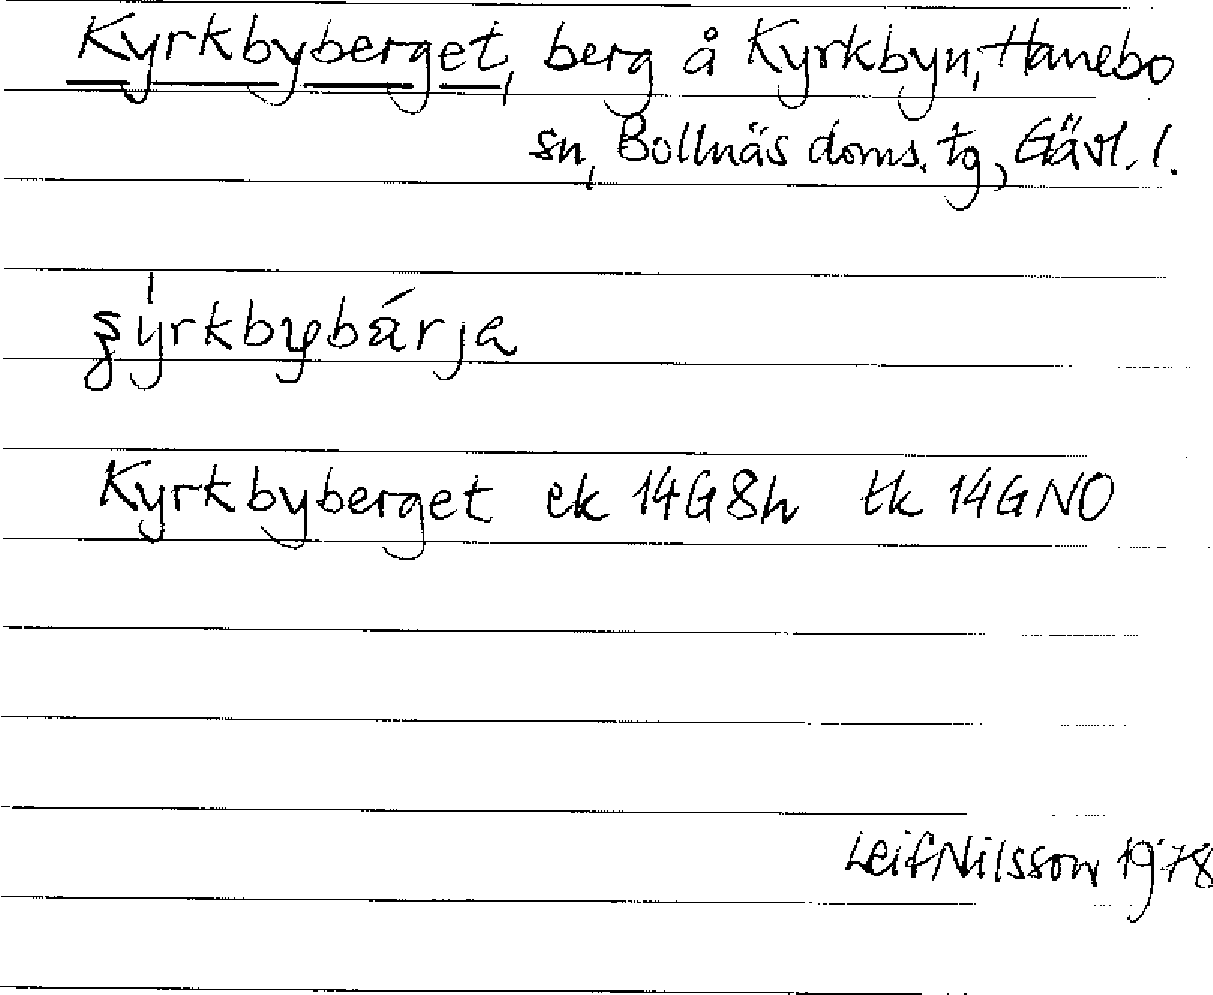 Kyrkbyberget, berg å Kyrkbyn, Hanebo
sn, Bollnäs doms. tg, Gävl. l.
Kyrkbyberget ek 14G8h tk 14GNO
Leif Nilsson 1978